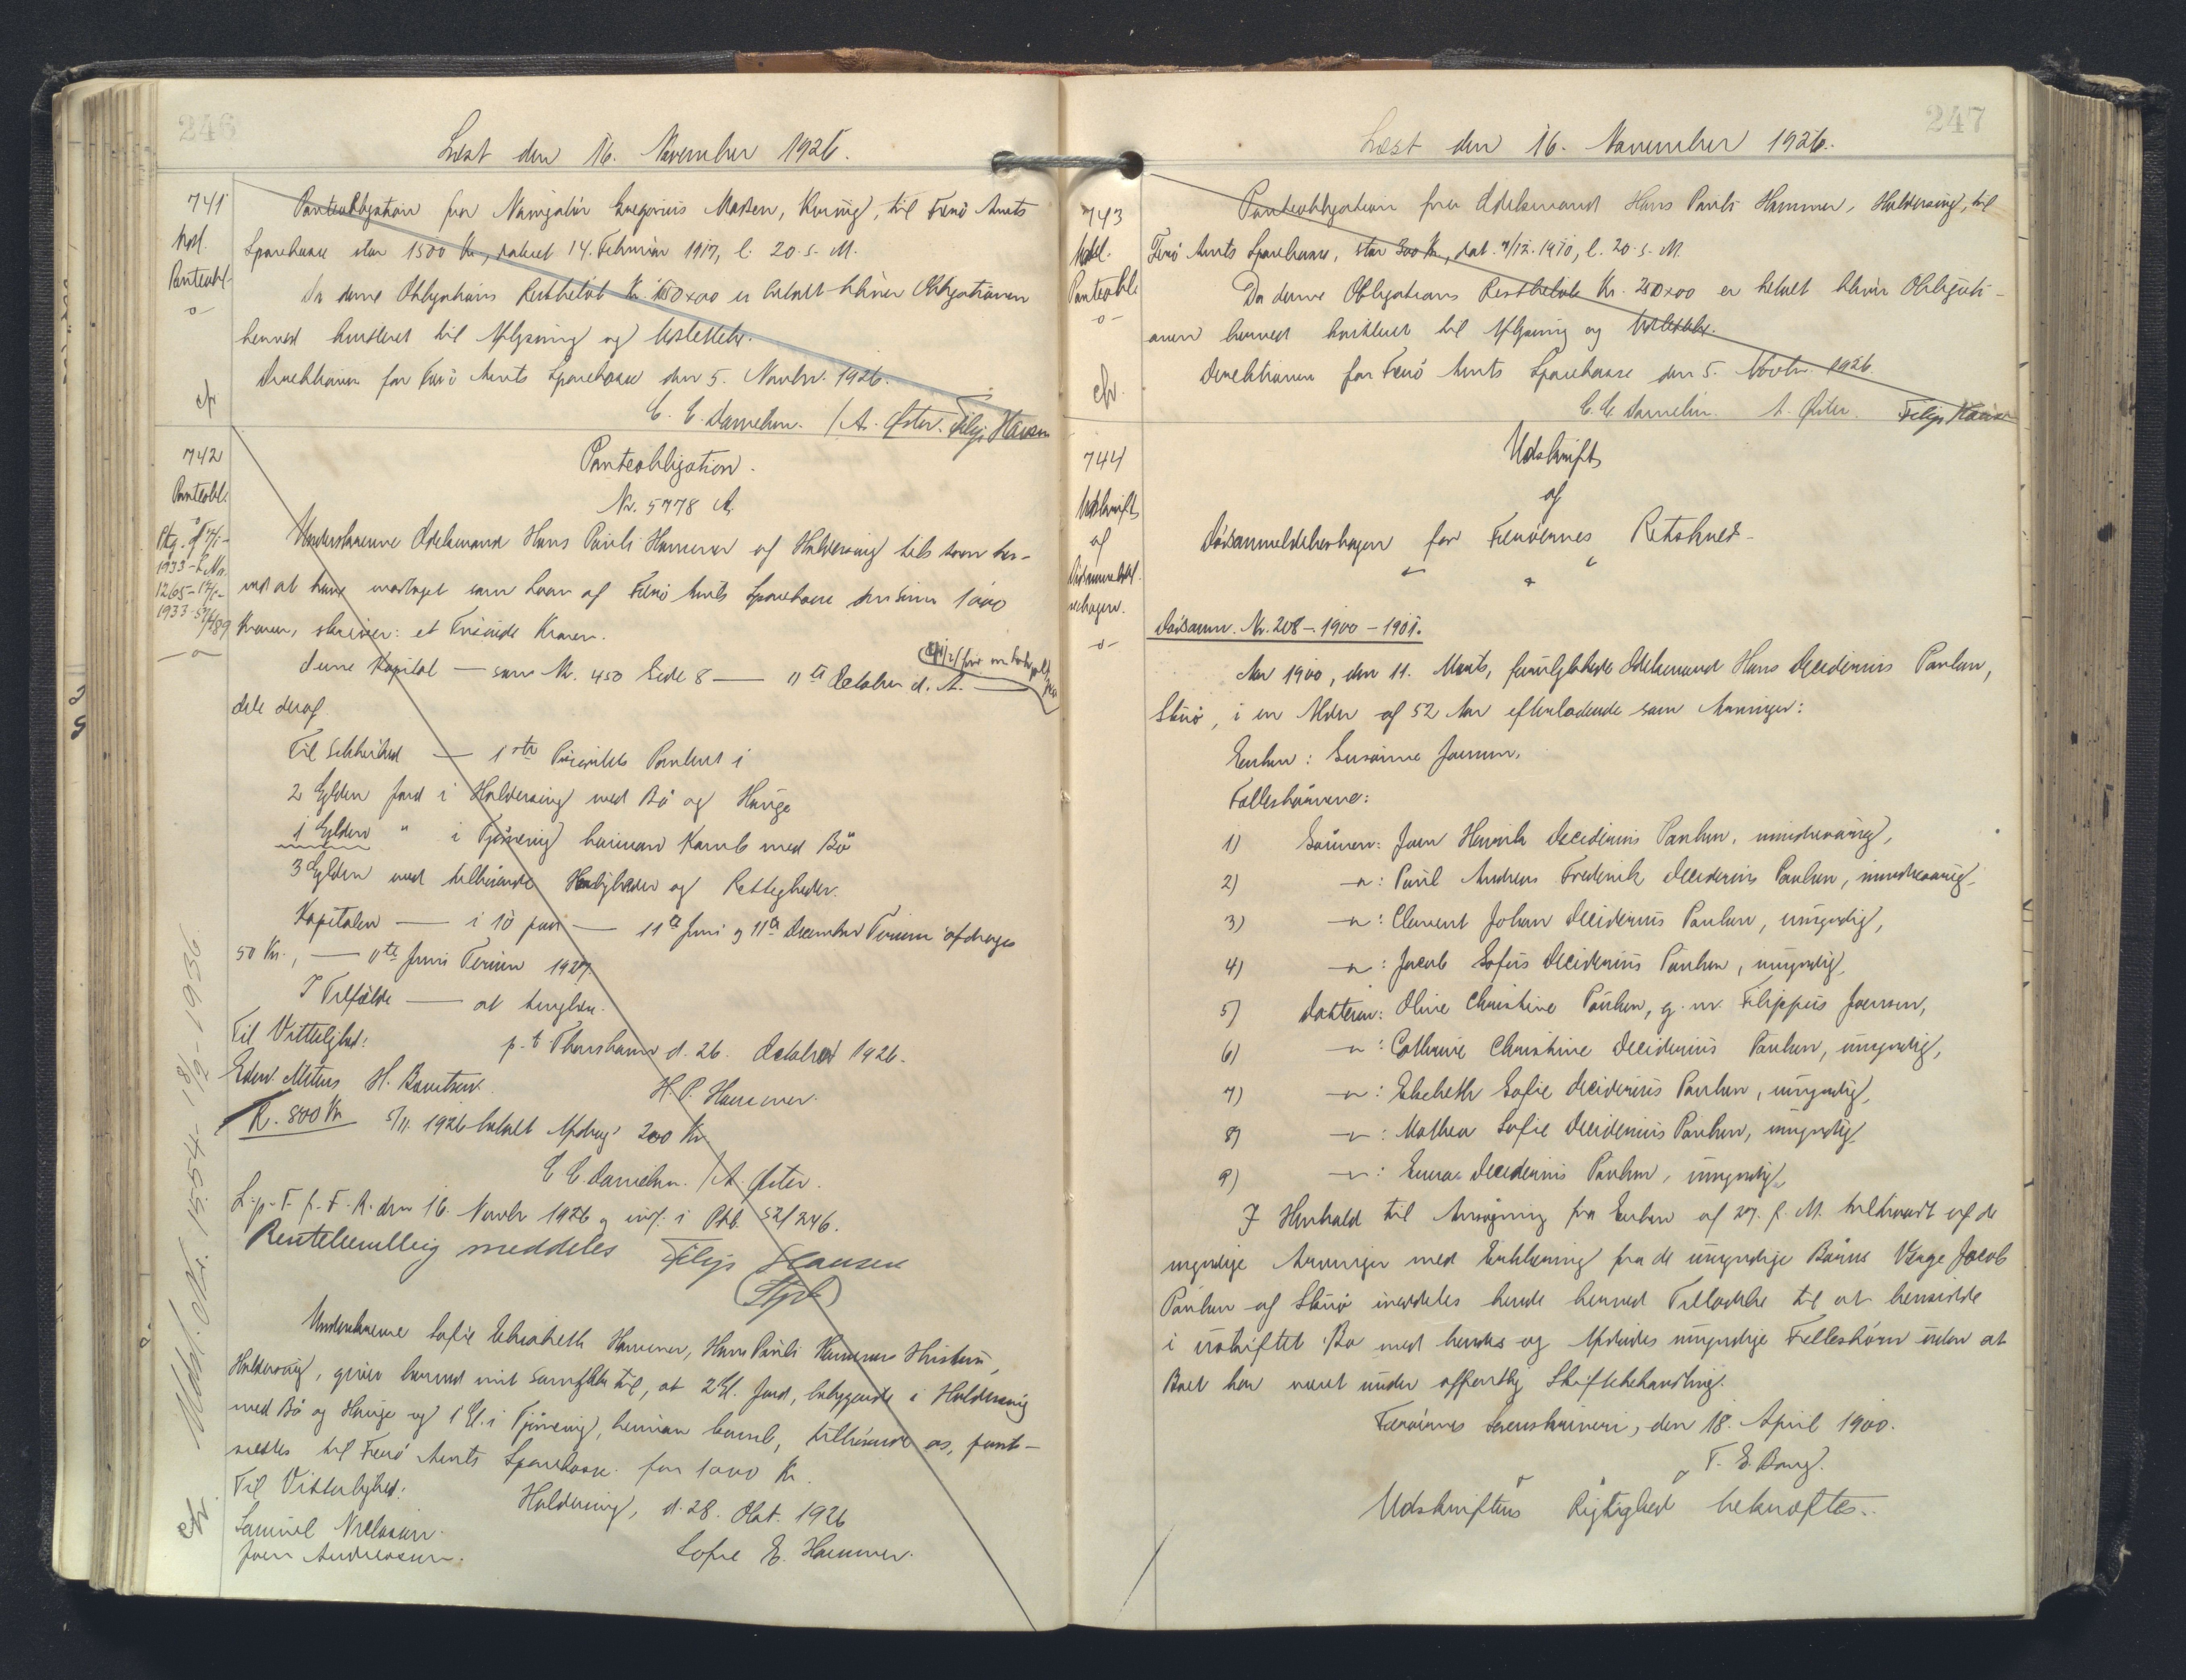 246
Læst den 16. November 1926.
741
Udsl.
Panteobl.
Panteobligation fra Navigatør Gregorius Madsen, til Færø Amts
Sparekasse stor 1500 Kr., dateret 14. Februar 1917, l. 20. s. M.
Da denne Obligations Restbeløb Kr. 150x00 er betalt bliver Obligationen
herved kvitteret til Aflysning og Udslettelse.
Direktionen for Færø Amts Sparekasse den 5. Novbr. 1926.
C. C. Danielsen. / A. Øster. Filip Hansen
742
Panteobl.
1933
1265
1933
Panteobligation.
Nr. 5778 A.
Underskrevne Odelsmand Hans Pauli Hammer af Haldersvig tilstaar her-
ved at have modtaget som Laan af Færø Amts Sparekasse den Summa 1000
Kroner, skriver: et Tusinde Kroner.
denne Kapital — som Nr. 450 Side 8 — 11te October d. A. —
dele deraf.
Til Sikkerhed — 1ste Prioritets Panteret i
2 Gylden Jord i Haldersvig med Bø og Hauge
1 Gylden " i Tjørnevig heiman Kamb med Bø
3 Gylden med tilhørende Herligheder og Rettigheder.
Kapitalen — i 10 paa — 11te Juni og 11te December Termin afdrages
50 Kr., — 11te Juni Termin 1927.
I Tilfælde — at tinglæse.
Til Vitterlighed: p. t. Thorshavn d. 26. October 1926.
Edw. Mitens H. Bærentsen. H. P. Hammer.
R. 800 Kr 5/11 1926 betalt Afdrag 200 Kr
C. C. Danielsen. / A. Øster.
L. p. T. f. F. R. den 16. Novbr 1926 og indf. i Ptb. 52/246.
Rentebevillig meddeles Filip Hansen
Underskrevne Sofie Elisabeth Hammer, Hans Pauli Hammers Hustru,
Haldersvig, giver herved mit Samtykke til, at 2 Gl. Jord, beliggende i Haldersvig
med Bø og Hauge og 1 Gl. i Tjørnevig, heiman kamb, tilhørende os, pant-
sættes til Færø Amts Sparekasse for 1000 Kr.
Til Vitterlighed: Haldersvig, d. 28. Okt. 1926
Samuel Nielsen.
Joen Andreasen. Sofie E. Hammer.
Udsl. Nr. 1554 - 18/2 - 1936
247
Læst den 16. November 1926.
743
Udsl.
Panteobl
Panteobligation fra Odelsmand Hans Pauli Hammer, Haldersvig, til
Færø Amts Sparekasse, stor 300 Kr., dat. 7/12. 1910, l. 20. s. M.
Da denne Obligations Restbeløb Kr. 200x00 er betalt bliver Obligati-
onen herved kvitteret til Aflysning og Udslettelse.
Direktionen for Færø Amts Sparekasse den 5. Novbr. 1926.
C. C. Danielsen. A. Øster. Filip Hansen
744
Udskrift
af
Dødsanmeldel-
sesbogen.
Udskrift
af
Dødsanmeldelsesbogen for Færøernes Retskreds.
Dødsanm. Nr. 208 - 1900 - 1901.
Aar 1900, den 11. Marts, Odelsmand Hans Desiderius Poulsen,
Skuø, i en Alder af 52 Aar efterladende som Arvinger:
Enken: Susanne Joensen.
Fællesbørnene:
1) Sønnen: Joen Henrik Deciderius Poulsen, mindreaarig,
2) — " — : Poul Andreas Frederik Deciderius Poulsen, mindreaarig
3) — " — : Clement Johan Deciderius Poulsen, umyndig,
4) — " — : Jacob Sofus Deciderius Poulsen, umyndig
5) Datteren: Oline Christine Poulsen, g. m. Filippus Joensen,
6) — " — : Cathrine Christine Deciderius Poulsen, umyndig,
7) — " — : Elsebeth Sofie Deciderius Poulsen, umyndig,
8) — " — : Mathea Sofie Deciderius Poulsen, umyndig
9) — " — : Emma Deciderius Poulsen, umyndig
I Henhold til Ansøgning fra Enken af 27. f. M. tiltraadt af de
myndige Arvinger med Erklæring fra de umyndige Børns Værge Jacob
Poulsen af Skuø meddeles hende herved Tilladelse til at hensidde
i uskiftet Bo med hendes og Afdødes umyndige Fællesbørn uden at
Boet har været under offentlig Skiftebehandling.
Færøernes Sorenskriveri, den 18. April 1900.
T. E. Bang.
Udskriftens Rigtighed bekræftes.